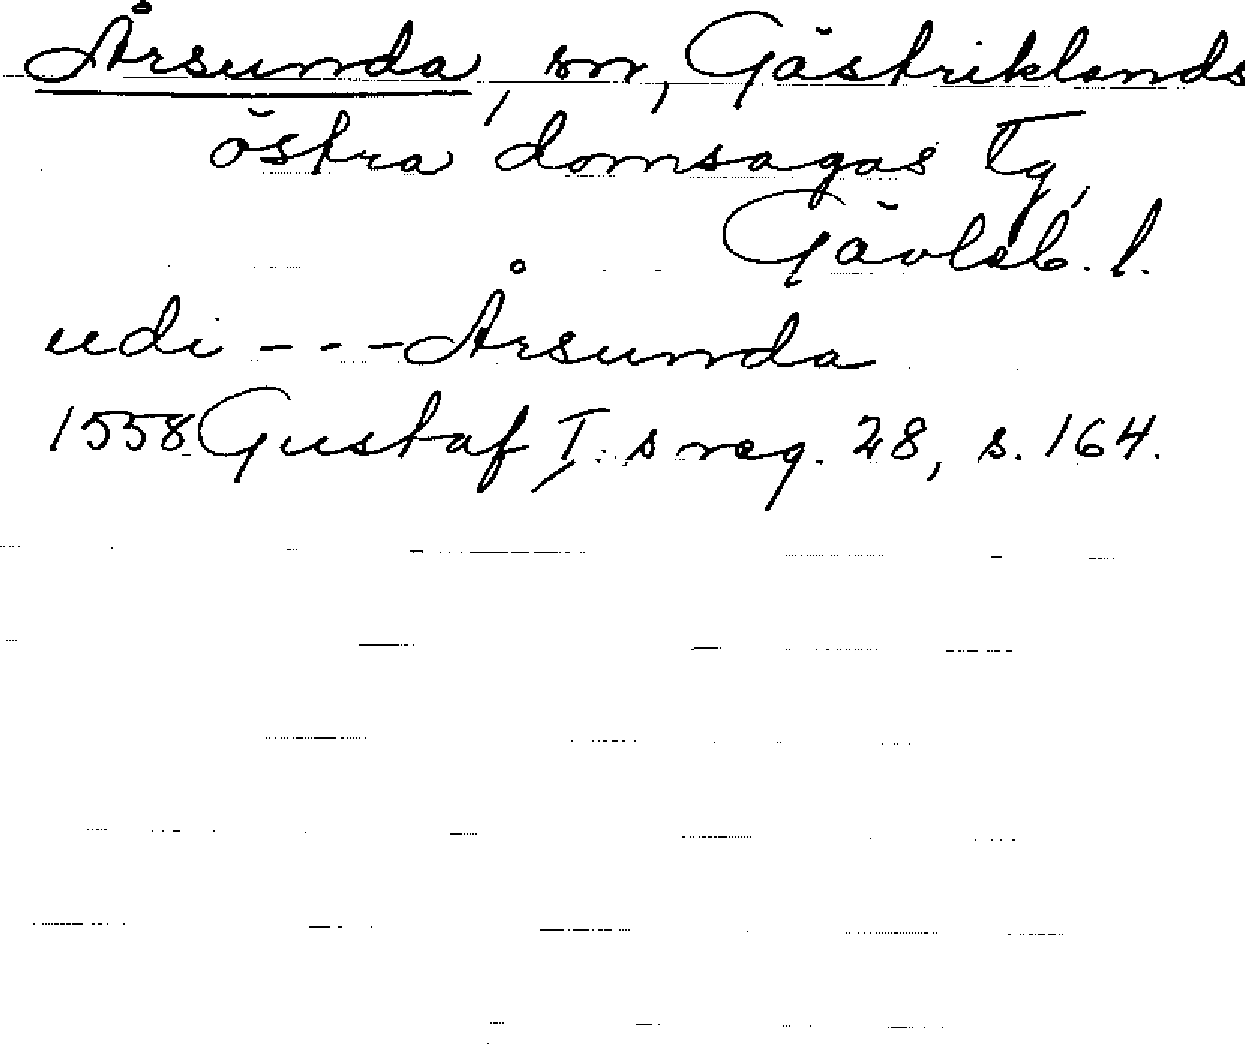 Årsunda, sn, Gästriklands
östra domsagas tg,
Gävleb. l.
udi - - - Årsunda
1558 Gustaf I:s reg. 28, s. 164.